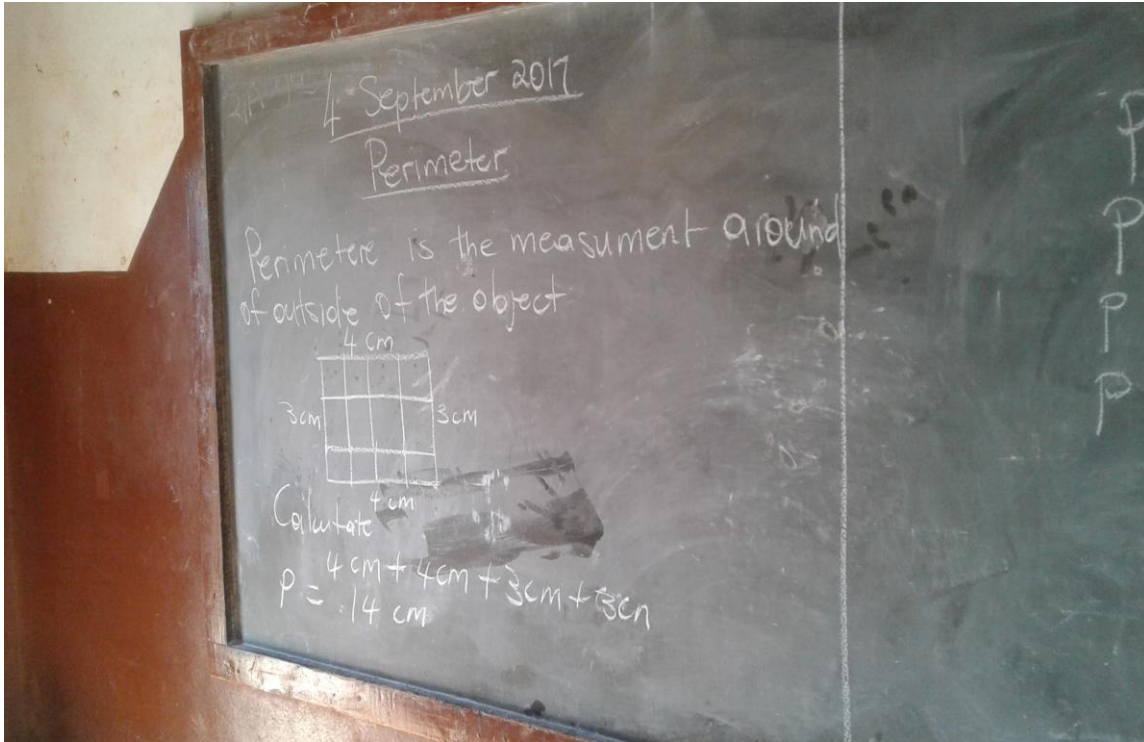 4 September 2017
Perimeter
Perimetere is the measument around
of outside of the object
4 cm
3cm
3cm
4 cm
Calculate
4 cm + 4cm + 3cm + 3cm
P = 14 cm
P
P
P
P